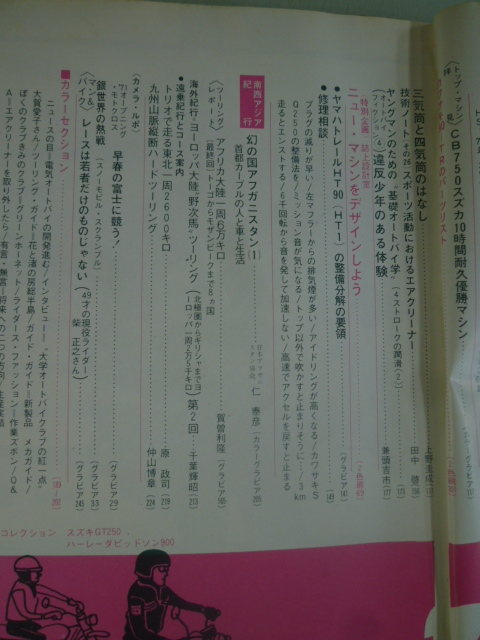 〈トップ・マシン見〉CB750スズカ10時間耐久優勝マシン
三気筒と四気筒のはなし
技術ノートその24 スポーツ活動におけるエアクリーナー
田中 健
ヤングマンのための・基礎オートバイ学(4ストロークの潤滑〈2〉)
兼頭吉市
違反少年のある体験
特別企画・誌上設計室
ニュー・マシンをデザインしよう
●ヤマハトレールHT90(HT1)の整備分解の要領
(グラビア141)
●修理相談
プラグの減りが早い/左マフラーからの排気煙が多い/アイドリングが高くなる/カワサキS
Q250の整備法を/ミッション音が気になる/トップ以外で吹かすと止まりそうに/3km
走るとエンストする/6千回転から音を発して加速しない/高速でアクセルを戻すと止まる
南西アジア紀行
幻の国アフガニスタン(1)
首都カーブルの人と車と生活
仁 泰彦(カラーグラビア205)
〈ツーリング・レポート〉
アフリカ大陸一周6万キロ
〈最終回〉トーゴからモザンビークまで8ヵ国
賀曽利隆(グラビア165)
海外紀行・ヨーロッパ大陸〝野次馬〟ツーリング
北極圏からギリシャまでヨーロッパ一周2万5千キロ
第2回
千葉輝昭(213)
●遠乗紀行とコース案内
トリオで走る東北一周2600キロ
原 政司(219)
九州山脈縦断ハードツーリング
仲山博章(224)
〈カメラ・ルポ〉
'71オープニング・モトクロス
早春の富士に競う!
(グラビア29)
銀世界の熱戦(スノーモビル・スクランブル)
(グラビア33)
〈マン&バイク〉
レースは若者だけのものじゃない(49才の現役ライダー 柴 正之さん)
(グラビア245)
■カラー・セクション
ニュースの目=電気オートバイの開発進む/インタビュー=大学オートバイクラブの紅一点・
大賀愛子さん/ツーリング・ガイド=花と渚の房総半島/ガイド・ガイド=新製品/メカガイド/
ぼくのクラブきみのクラブ=グリーンホーネット/ライダース・ファッション=作業ズボン/Q&
A=エアクリーナーを取り外したら/有言・無言=将来への二つの方向/
コレクション スズキGT250
ハーレーダビッドソン900